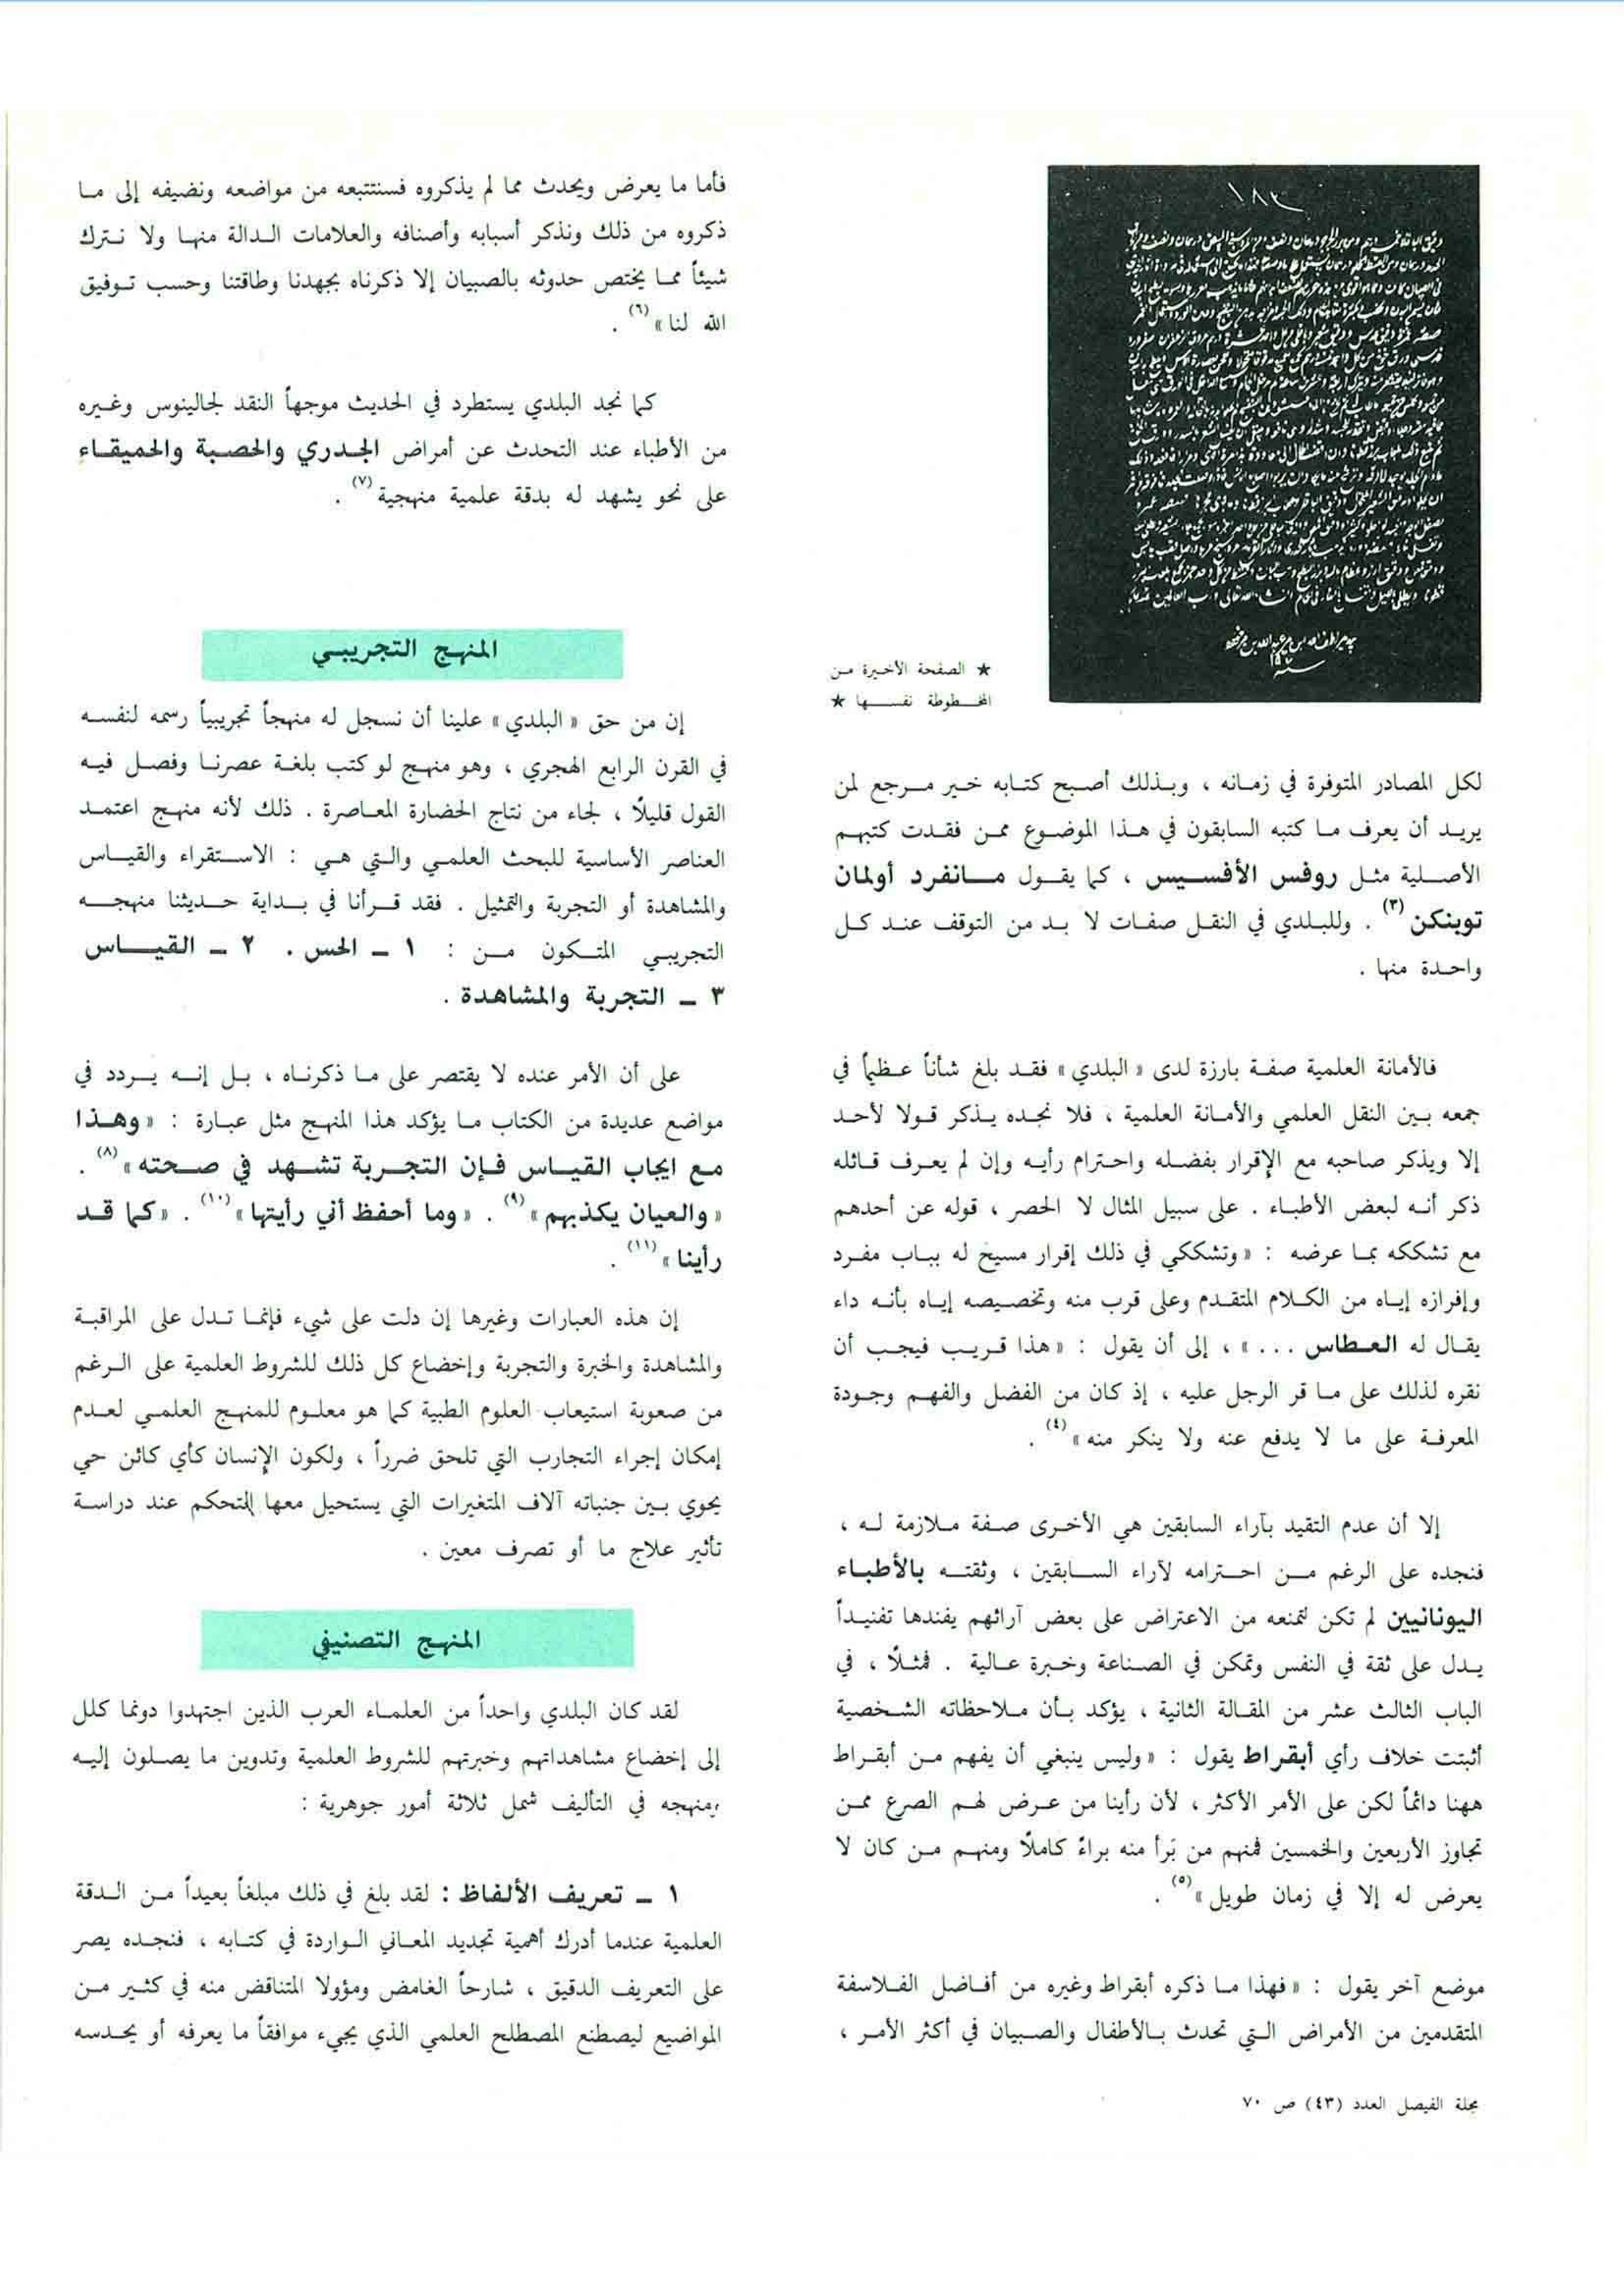 ١٨٣
★ الصفحة الأخيرة من
المخطوطة نفسها ★
لكل المصادر المتوفرة في زمانه ، وبذلك أصبح كتابه خير مرجع لمن
يريد أن يعرف ما كتبه السابقون في هذا الموضوع ممن فقدت كتبهم
الأصلية مثل روفس الأفسيس ، كما يقول مانفرد أولمان
توبنكن (٣) . وللبلدي في النقل صفات لا بد من التوقف عند كل
واحدة منها .
فالأمانة العلمية صفة بارزة لدى « البلدي » فقد بلغ شأناً عظيماً في
جمعه بين النقل العلمي والأمانة العلمية ، فلا نجده يذكر قولا لأحد
إلا ويذكر صاحبه مع الإقرار بفضله واحترام رأيه وإن لم يعرف قائله
ذكر أنه لبعض الأطباء . على سبيل المثال لا الحصر ، قوله عن أحدهم
مع تشككه بما عرضه : « وتشككي في ذلك إقرار مسيح له بباب مفرد
وإفرازه إياه من الكلام المتقدم وعلى قرب منه وتخصيصه إياه بأنه داء
يقال له العطاس ... » ، إلى أن يقول : « هذا قريب فيجب أن
نقره لذلك على ما قر الرجل عليه ، إذ كان من الفضل والفهم وجودة
المعرفة على ما لا يدفع عنه ولا ينكر منه » (٤) .
إلا أن عدم التقيد بآراء السابقين هي الأخرى صفة ملازمة له ،
فنجده على الرغم من احترامه لآراء السابقين ، وثقته بالأطباء
اليونانيين لم تكن لتمنعه من الاعتراض على بعض آرائهم يفندها تفنيداً
يدل على ثقة في النفس وتمكن في الصناعة وخبرة عالية . فمثلًا ، في
الباب الثالث عشر من المقالة الثانية ، يؤكد بأن ملاحظاته الشخصية
أثبتت خلاف رأي أبقراط يقول : « وليس ينبغي أن يفهم من أبقراط
ههنا دائماً لكن على الأمر الأكثر ، لأن رأينا من عرض لهم الصرع ممن
تجاوز الأربعين والخمسين فمنهم من بَرأ منه براءً كاملًا ومنهم من كان لا
يعرض له إلا في زمان طويل » (٥) .
موضع آخر يقول : « فهذا ما ذكره أبقراط وغيره من أفاضل الفلاسفة
المتقدمين من الأمراض التي تحدث بالأطفال والصبيان في أكثر الأمر ،
مجلة الفيصل العدد (٤٣) ص ٧٠
فأما ما يعرض ويحدث مما لم يذكروه فسنتتبعه من مواضعه ونضيفه إلى ما
ذكروه من ذلك ونذكر أسبابه وأصنافه والعلامات الدالة منها ولا نترك
شيئاً مما يختص حدوثه بالصبيان إلا ذكرناه بجهدنا وطاقتنا وحسب توفيق
الله لنا » (٦) .
كما نجد البلدي يستطرد في الحديث موجهاً النقد لجالينوس وغيره
من الأطباء عند التحدث عن أمراض الجدري والحصبة والحميقاء
على نحو يشهد له بدقة علمية منهجية (٧) .
المنهج التجريبي
إن من حق « البلدي » علينا أن نسجل له منهجاً تجريبياً رسمه لنفسه
في القرن الرابع الهجري ، وهو منهج لو كتب بلغة عصرنا وفصل فيه
القول قليلًا ، لجاء من نتاج الحضارة المعاصرة . ذلك لأنه منهج اعتمد
العناصر الأساسية للبحث العلمي والتي هي : الاستقراء والقياس
والمشاهدة أو التجربة والتمثيل . فقد قرأنا في بداية حديثنا منهجه
التجريبي المتكون من : ١ ـ الحس . ٢ ـ القياس
٣ ـ التجربة والمشاهدة .
على أن الأمر عنده لا يقتصر على ما ذكرناه ، بل إنه يردد في
مواضع عديدة من الكتاب ما يؤكد هذا المنهج مثل عبارة : « وهذا
مع ايجاب القياس فإن التجربة تشهد في صحته » (٨) .
« والعيان يكذبهم » (٩) . « وما أحفظ أني رأيتها » (١٠) . « كما قد
رأينا » (١١) .
إن هذه العبارات وغيرها إن دلت على شيء فإنما تدل على المراقبة
والمشاهدة والخبرة والتجربة وإخضاع كل ذلك للشروط العلمية على الرغم
من صعوبة استيعاب العلوم الطبية كما هو معلوم للمنهج العلمي لعدم
إمكان إجراء التجارب التي تلحق ضرراً ، ولكون الإنسان كأي كائن حي
يحوي بين جنباته آلاف المتغيرات التي يستحيل معها التحكم عند دراسة
تأثير علاج ما أو تصرف معين .
المنهج التصنيفي
لقد كان البلدي واحداً من العلماء العرب الذين اجتهدوا دونما كلل
إلى إخضاع مشاهداتهم وخبرتهم للشروط العلمية وتدوين ما يصلون إليه
ومنهجه في التأليف شمل ثلاثة أمور جوهرية :
١ ـ تعريف الألفاظ : لقد بلغ في ذلك مبلغاً بعيداً من الدقة
العلمية عندما أدرك أهمية تجديد المعاني الواردة في كتابه ، فنجده يصر
على التعريف الدقيق ، شارحاً الغامض ومؤولا المتناقض منه في كثير من
المواضيع ليصطنع المصطلح العلمي الذي يجيء موافقاً ما يعرفه أو يحدسه